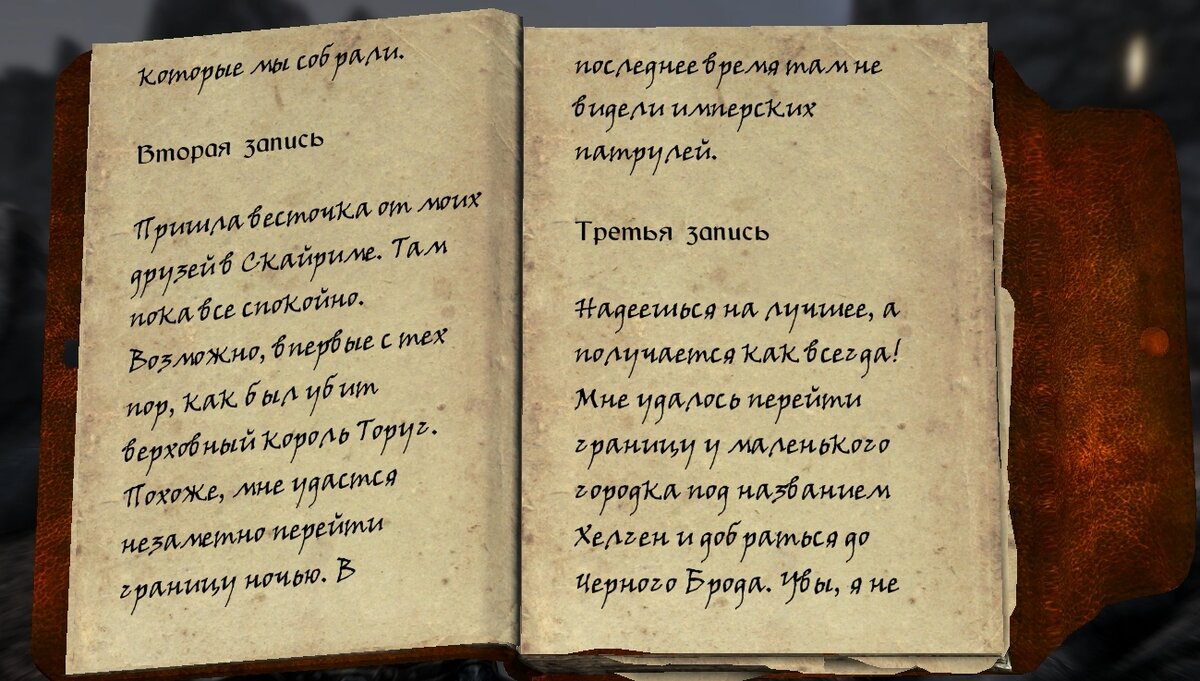 которые мы собрали.
Вторая запись
Пришла весточка от моих
друзей в Скайриме. Там
пока все спокойно.
Возможно, впервые с тех
пор, как был убит
верховный король Торуг.
Похоже, мне удастся
незаметно перейти
границу ночью. В
последнее время там не
видели имперских
патрулей.
Третья запись
Надеешься на лучшее, а
получается как всегда!
Мне удалось перейти
границу у маленького
городка под названием
Хелген и добраться до
Черного Брода. Увы, я не